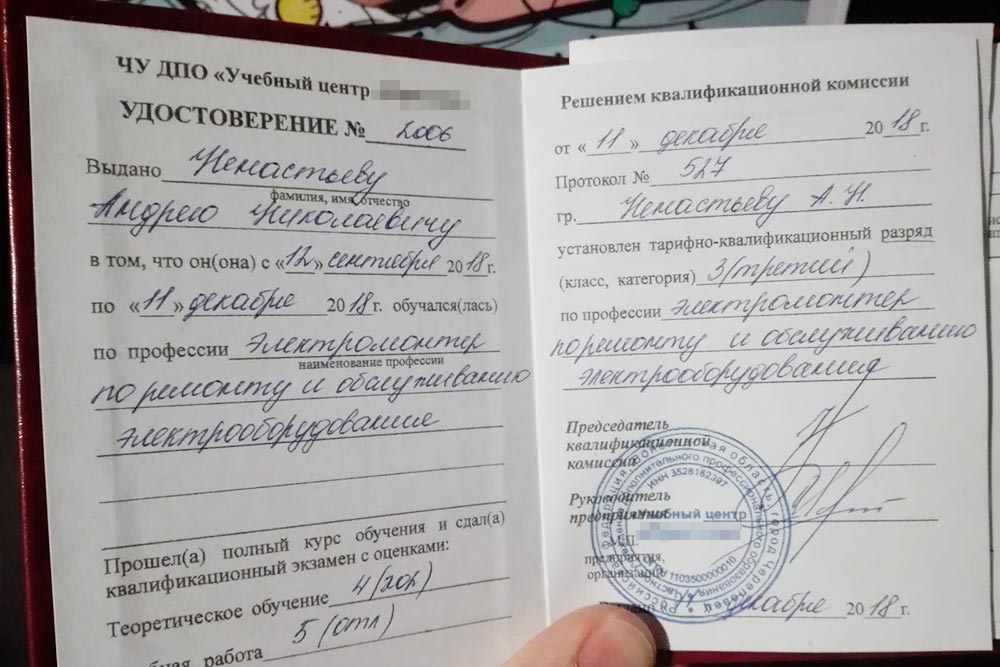 ЧУ ДПО «Учебный центр
УДОСТОВЕРЕНИЕ № 2006
Выдано Ненастьеву
фамилия, имя, отчество
Андрею Николаевичу
в том, что он(она) с «12» сентября 2018г.
по «11» декабре 2018г. обучался(лась)
по профессии Электромонтер
наименование профессии
по ремонту и обслуживанию
электрооборудования
Прошел(а) полный курс обучения и сдал(а)
квалификационный экзамен с оценками:
Теоретическое обучение 4 (хор)
работа 5 (отл)
Решением квалификационной комиссии
от «11» декабре 2018г.
Протокол № 527
гр. Ненастьеву А. Н.
установлен тарифно-квалификационный разряд
(класс, категория) 3 (третий)
по профессии Электромонтер
по ремонту и обслуживанию
электрооборудования
Председатель
квалификационной
комиссии
Руководитель
предприятия
М.П.
предприятия,
организации
декабре 2018г.
ИНН 3528182397
Учебный центр
город Череповец